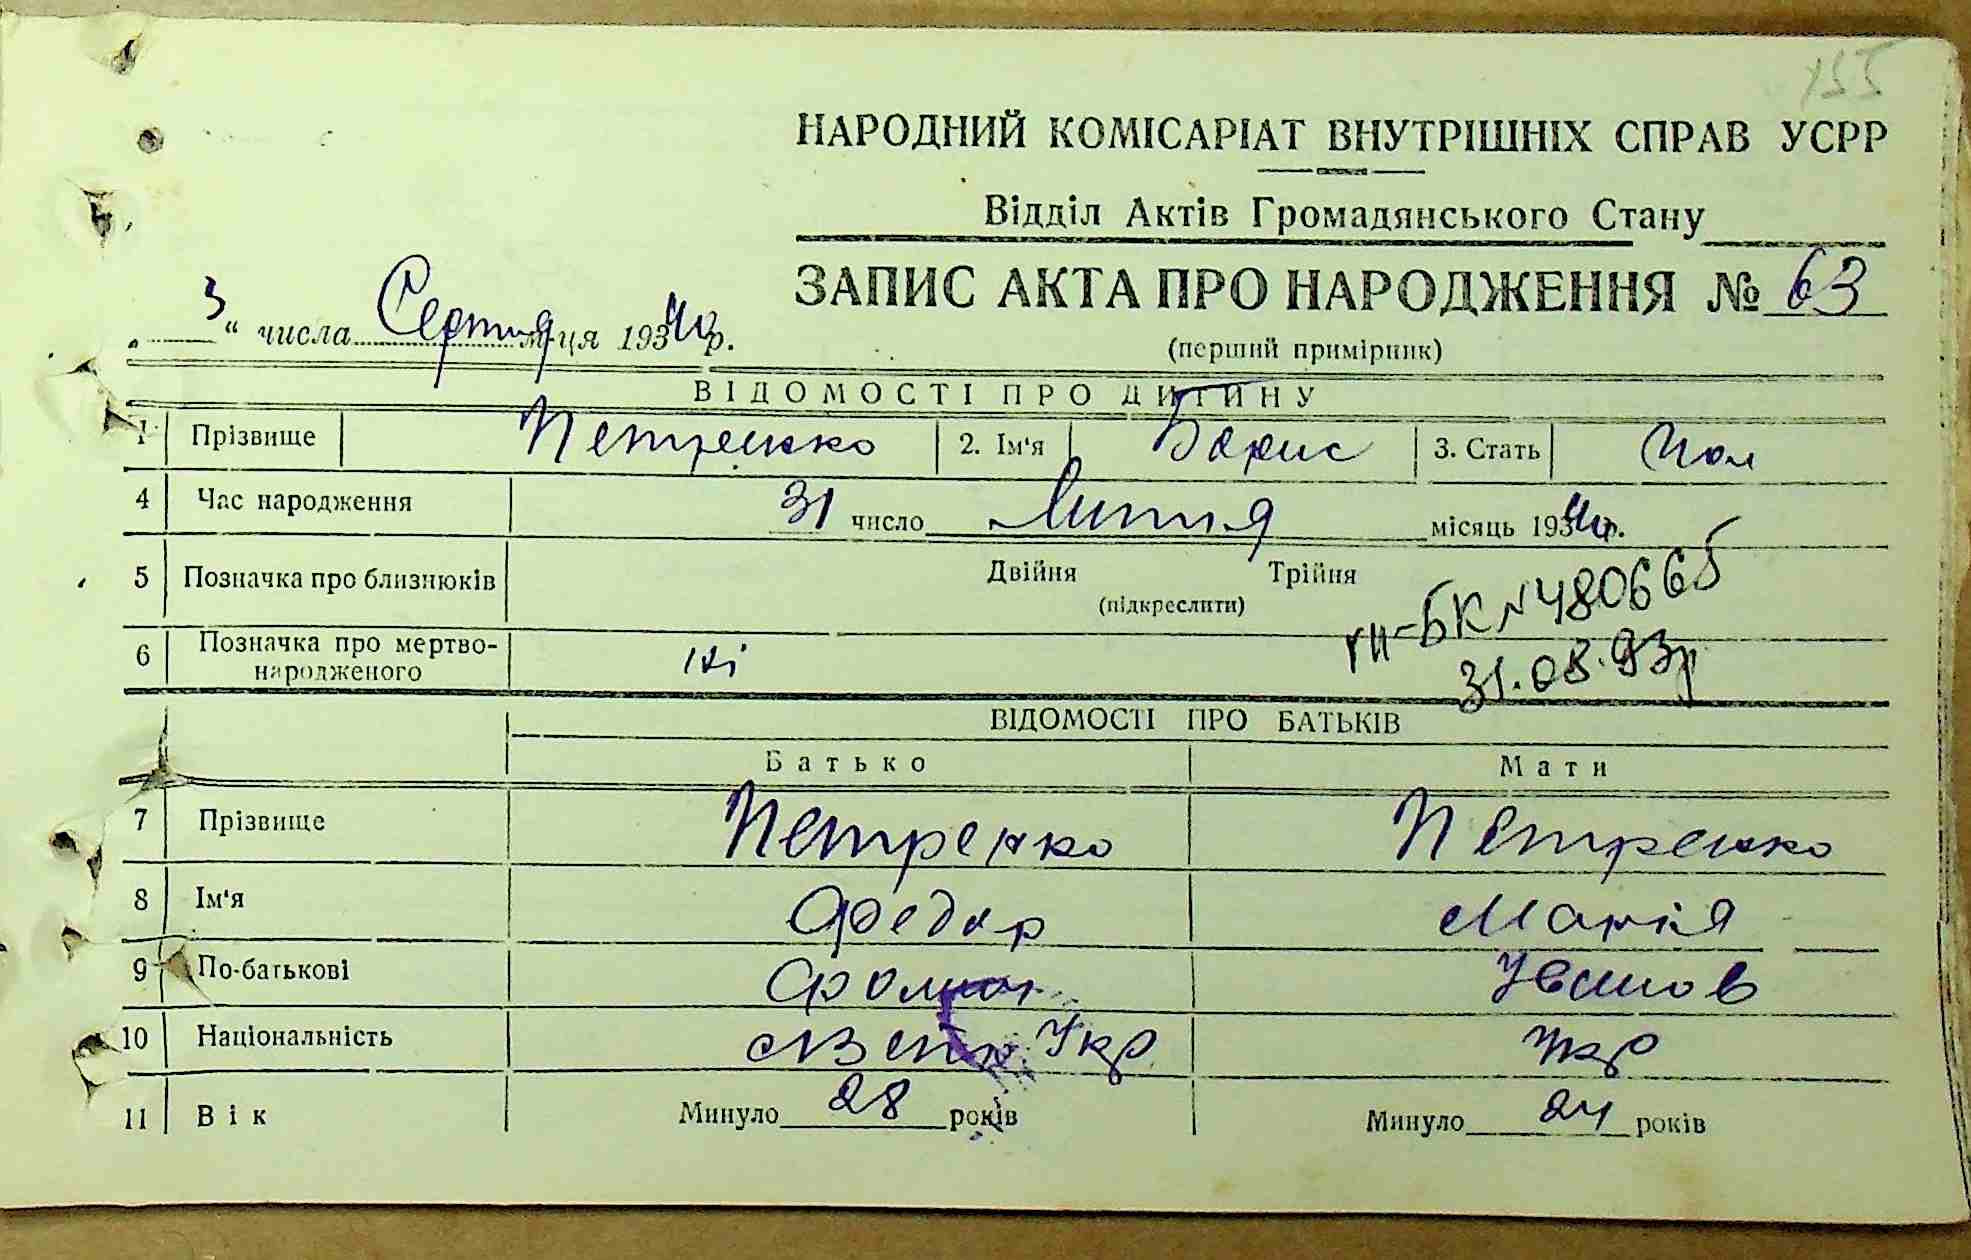 155
НАРОДНИЙ КОМІСАРІАТ ВНУТРІШНІХ СПРАВ УСРР
Відділ Актів Громадянського Стану
ЗАПИС АКТА ПРО НАРОДЖЕННЯ № 63
„ 3 “ числа Серпня м-ця 1934 40 р.
(перший примірник)
ВІДОМОСТІ ПРО ДИТИНУ
1 Прізвище Петренко 2. Ім'я Борис 3. Стать Чол
4 Час народження 31 число Липня місяць 193 40 р.
5 Позначка про близнюків Двійня Трійня
(підкреслити)
гн-БК №480665
6 Позначка про мертво-
народженого ні
31.08.93р
ВІДОМОСТІ ПРО БАТЬКІВ
Батько Мати
7 Прізвище Петренко Петренко
8 Ім'я Федор Марія
9 По-батькові Иванов
10 Національність Укр Укр
11 Вік Минуло 28 років Минуло 24 років